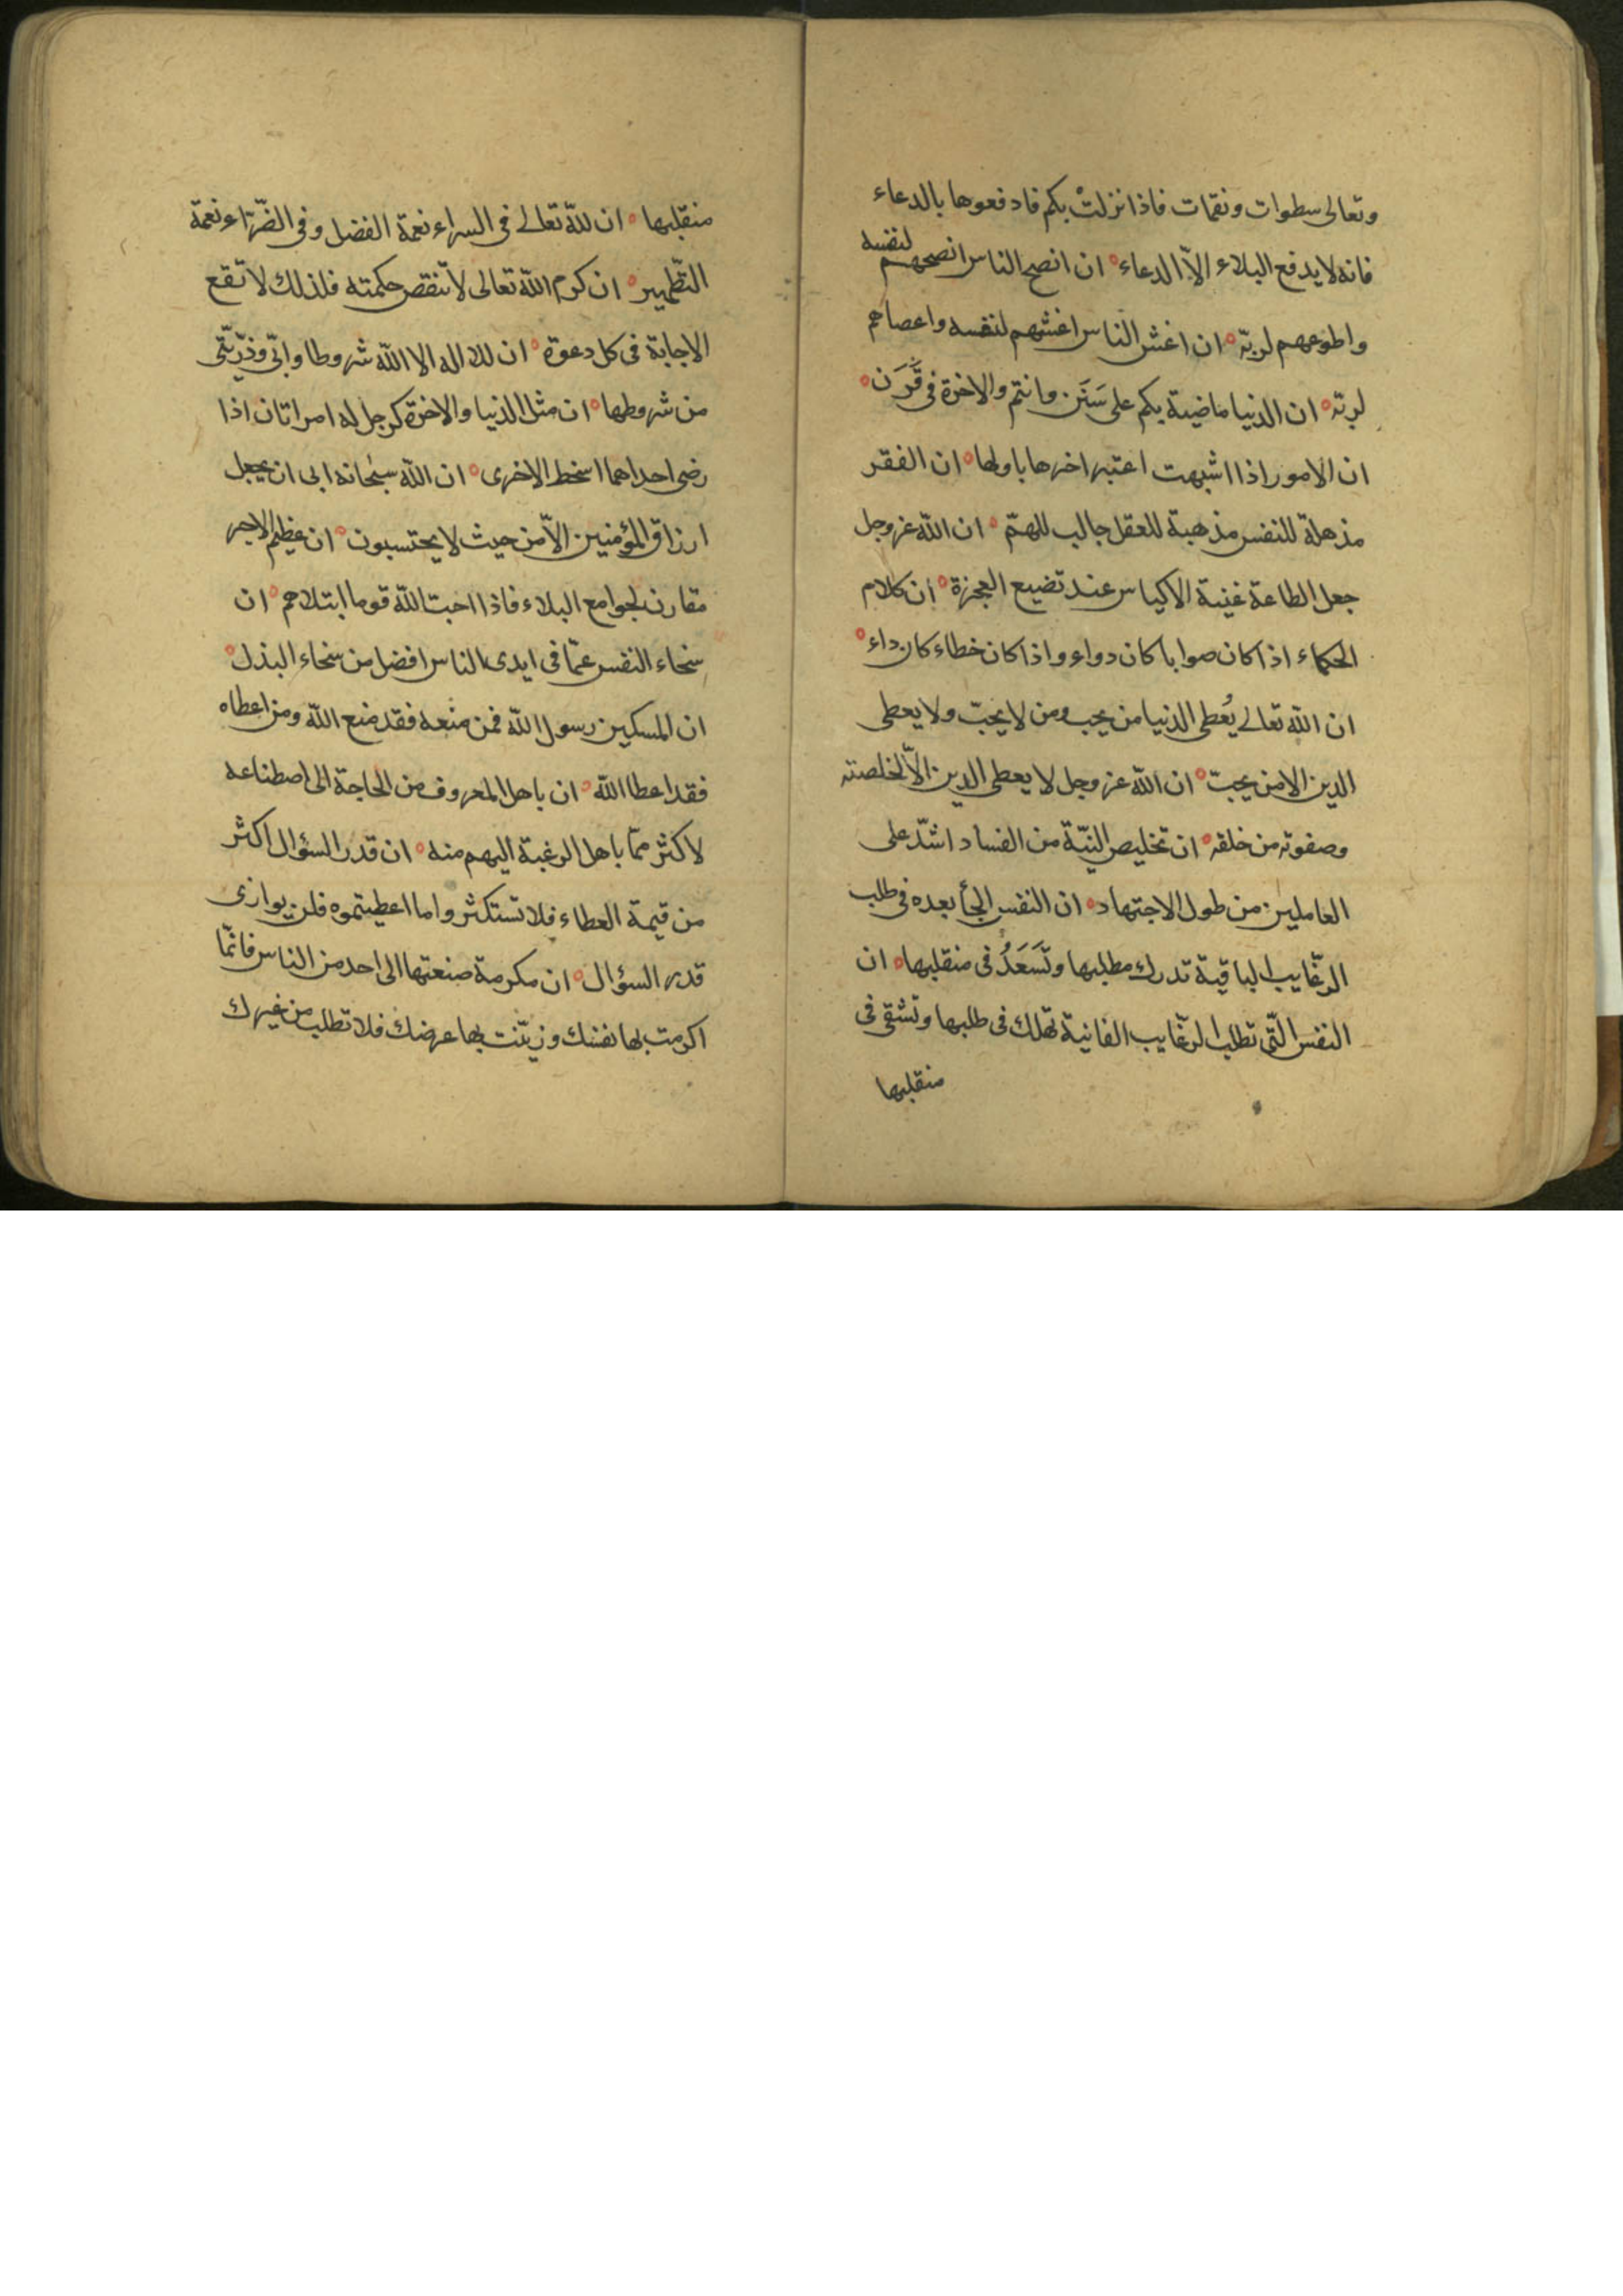 وتعالى سطوات ونقمات فاذا نزلتْ بكم فادفعوها بالدعاء
فانه لا يدفع البلاء الاّ الدعاء ه ان انصح الناس انصحهم لنفسه
واطوعهم لربّه ه ان اغش الناس اغشهم لنفسه واعصاهم
لربّه ه ان الدنيا ماضية بكم على سَنَن وانتم والاخرة فى قَرَن ه
ان الامور اذا اشبهت اعتبر اخرها باولها ه ان الفقر
مذهلة للنفس مذهبة للعقل جالب للهمّ ه ان الله عز وجل
جعل الطاعة غنية الاكياس عند تضيع العجزة ه ان كلام
الحكماء اذا كان صوابا كان دواء واذا كان خطاء كان داء ه
ان الله تعالى يُعطى الدنيا من يحب ومن لا يحبّ ولا يعطى
الدين الا من يحبّ ه ان الله عز وجل لا يعطى الدين الاّ لخاصته
وصفوته من خلقه ه ان تخليص النيّة من الفساد اشدّ على
العاملين من طول الاجتهاد ه ان النفس فى طلب
الرغّايب الباقية تدرك مطلبها وتَسَعَدُ فى منقلبها ه ان
النفس الّتى تطلب الرغّايب الفانية تهلك فى طلبها وتشقى فى
منقلبها
منقلبها ه ان للّه تعالى فى السراء نعمة الفضل وفى الضّرّاء نعمة
التّطهير ه ان كرم اللّه تعالى لا ينقص حكمته فلذلك لا تقع
الاجابة فى كل دعوة ه ان للا اله الا اللّه شروطا وانّى وذرّيّتى
من شروطها ه ان مثل الدنيا والاخرة كرجل له امراتان اذا
رضى احداهما اسخط الاخرى ه ان اللّه سبحانه ابى ان يجعل
ارزاق المؤمنين الاّ من حيث لا يحتسبون ه ان عظيم الاجر
مقارن لجوامع البلاء فاذا احبّ اللّه قوما ابتلاهم ه ان
سخاء النفس عمّا فى ايدى الناس افضل من سخاء البذل ه
ان المسكين رسول اللّه فمن منعه فقد منع اللّه ومن اعطاه
فقد اعطا اللّه ه ان باهل المعروف من الحاجة الى اصطناعه
لاكثر ممّا باهل الرغبة اليهم منه ه ان قدر السؤال اكثر
من قيمة العطاء فلا تستكثروا ما اعطيتموه فلن يوازى
قدر السؤال ه ان مكرمة صنعتها الى احد من الناس فانّما
اكرمت بها نفسك وزيّنت بها عرضك فلا تطلب من غيرك